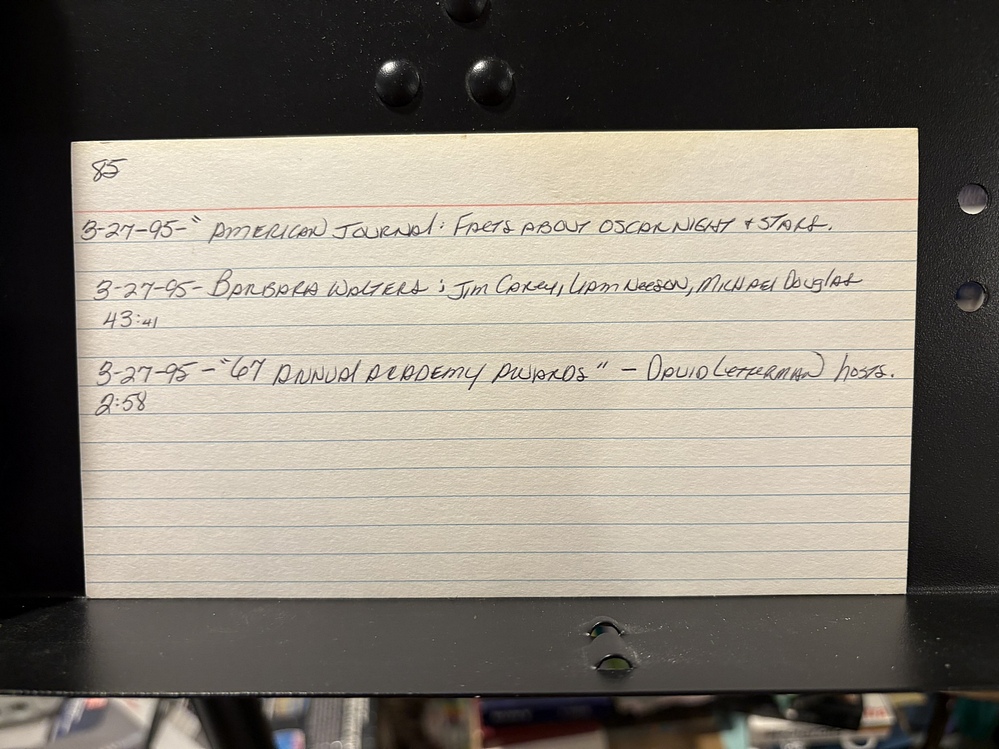 85
3-27-95-" AMERICAN JOURNAL: FACTS ABOUT OSCAR NIGHT + STARS.
3-27-95- BARBARA WALTERS: Jim Carey, Liam Neeson, Michael Douglas
43:41
3-27-95-"67 ANNUAL ACADEMY AWARDS" - DAVID LETTERMAN hosts.
2:58